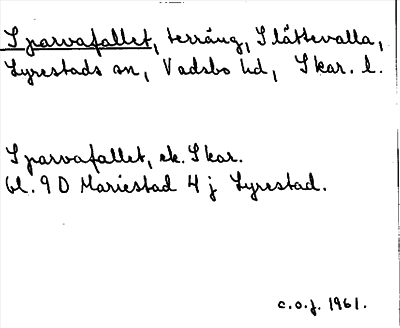 Sparvafallet, terräng, Slättevalla,
Lyrestads sn, Vadsbo hd, Skar. l.
Sparvafallet, ek. Skar.
bl. 9D Mariestad 4 j Lyrestad.
c.o.j. 1961.